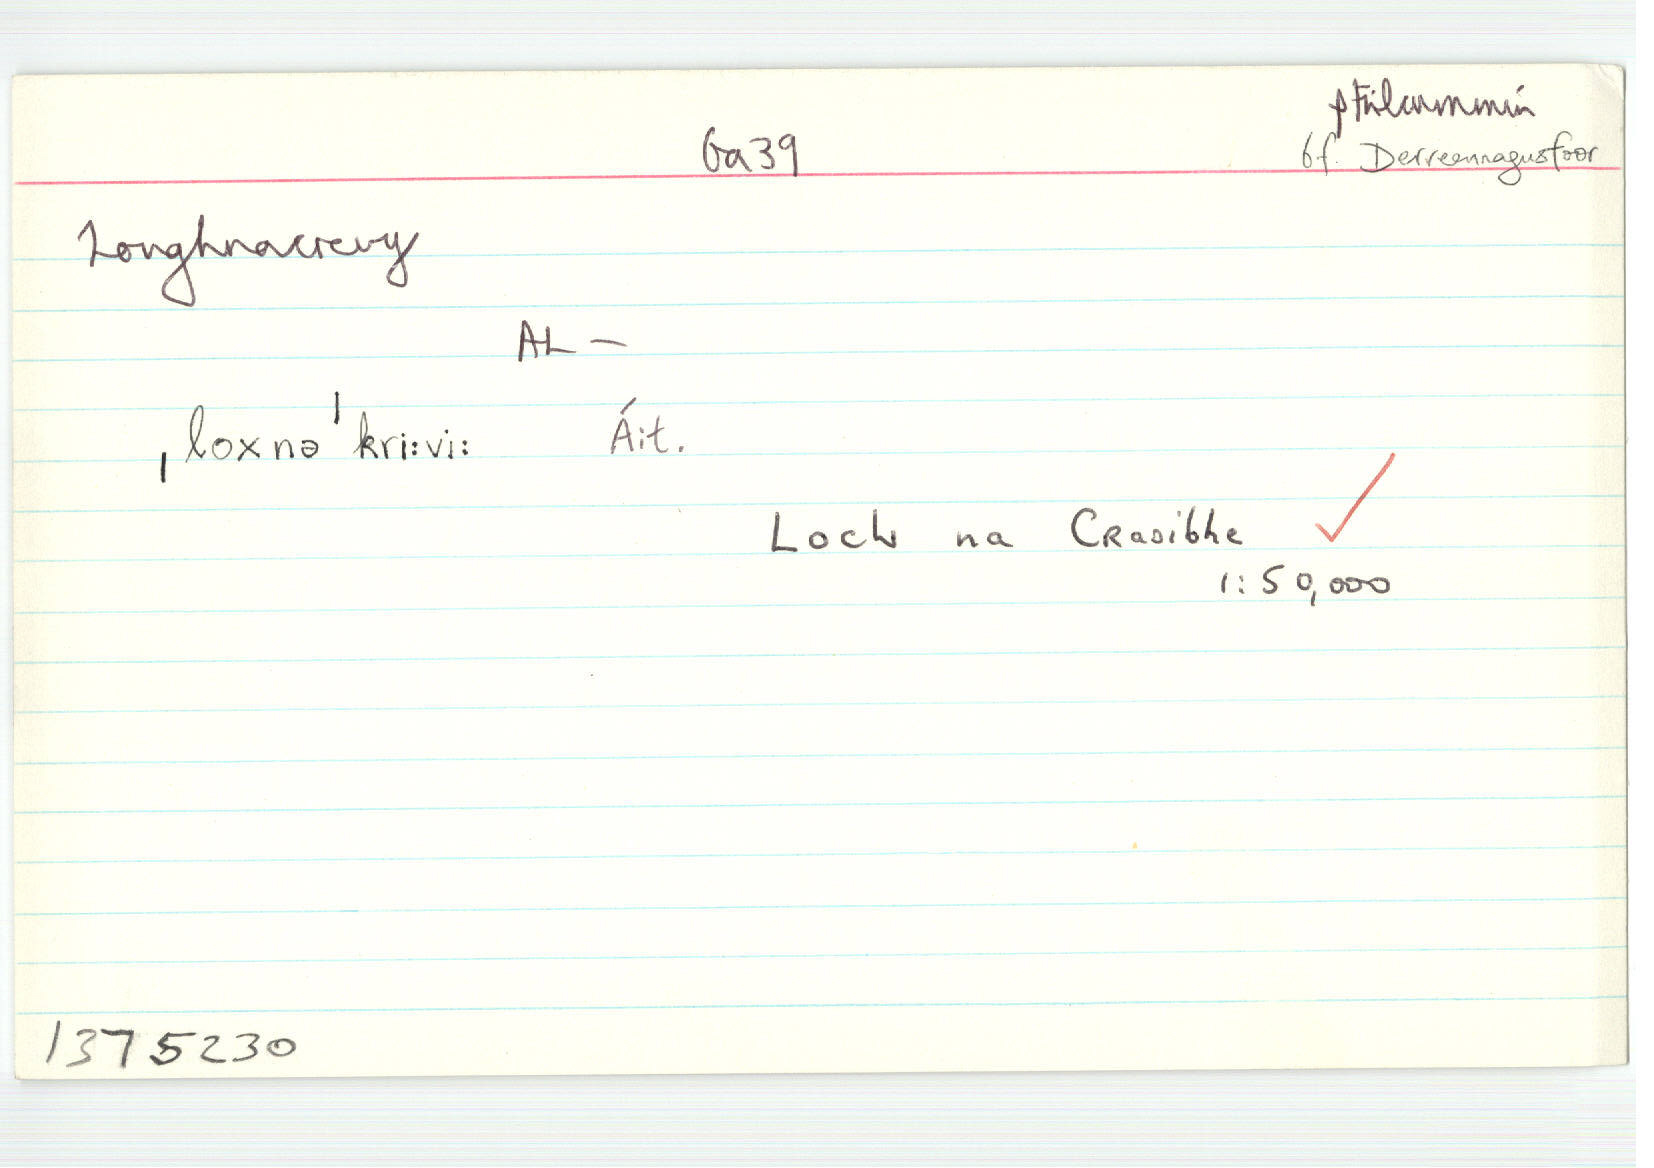 p Kilcummin
Ga 39
bf. Derreennagusfoor
Loughnacrevy
AL —
ˌloxnəˈkri:vi: Áit.
Loch na Craoibhe ✓
1:50,000
1375230